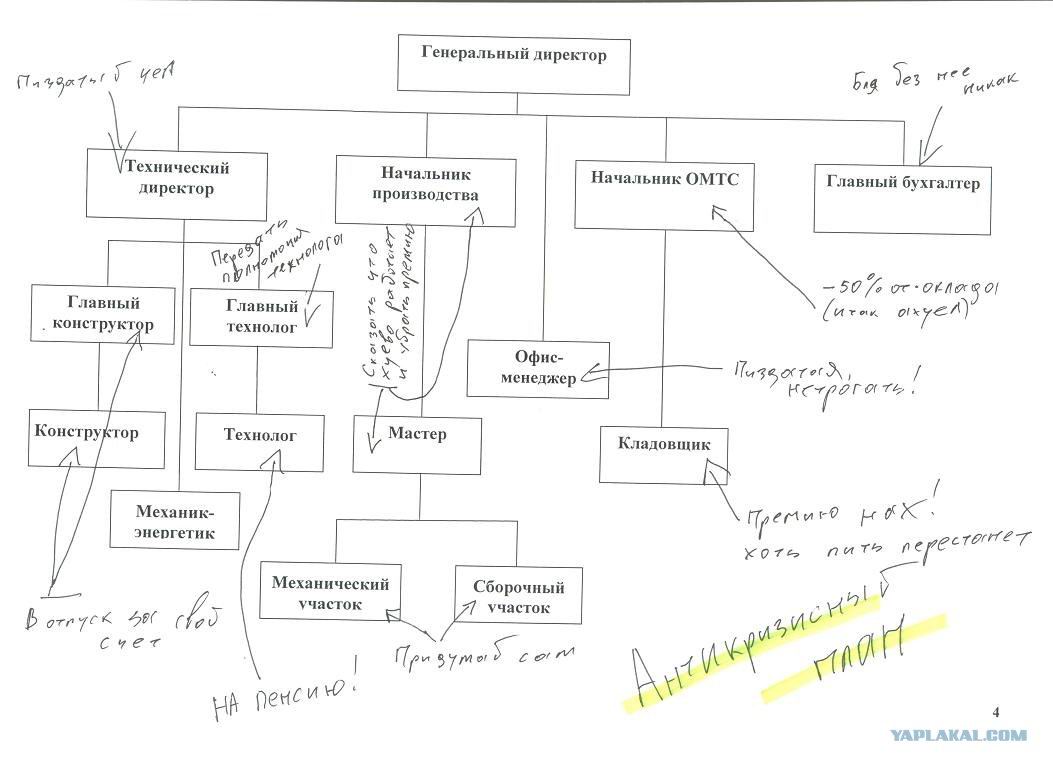 Генеральный директор
Бля без нее
никак
Технический
директор
Начальник
производства
Начальник ОМТС
Главный бухгалтер
Передать
полномочия
технолога
Сказать что
хуево работает
и убрать премию
Главный
конструктор
Главный
технолог
-50% от оклада
(итак охуел)
Офис-
менеджер
Пиздатая,
нетрогать!
Конструктор
Технолог
Мастер
Кладовщик
Механик-
энергетик
Премию нах!
хоть пить перестанет
Механический
участок
Сборочный
участок
В отпуск за свой
счет
Придумаб сам
НА пенсию!
Антикризисный
план
4
YAPLAKAL.COM